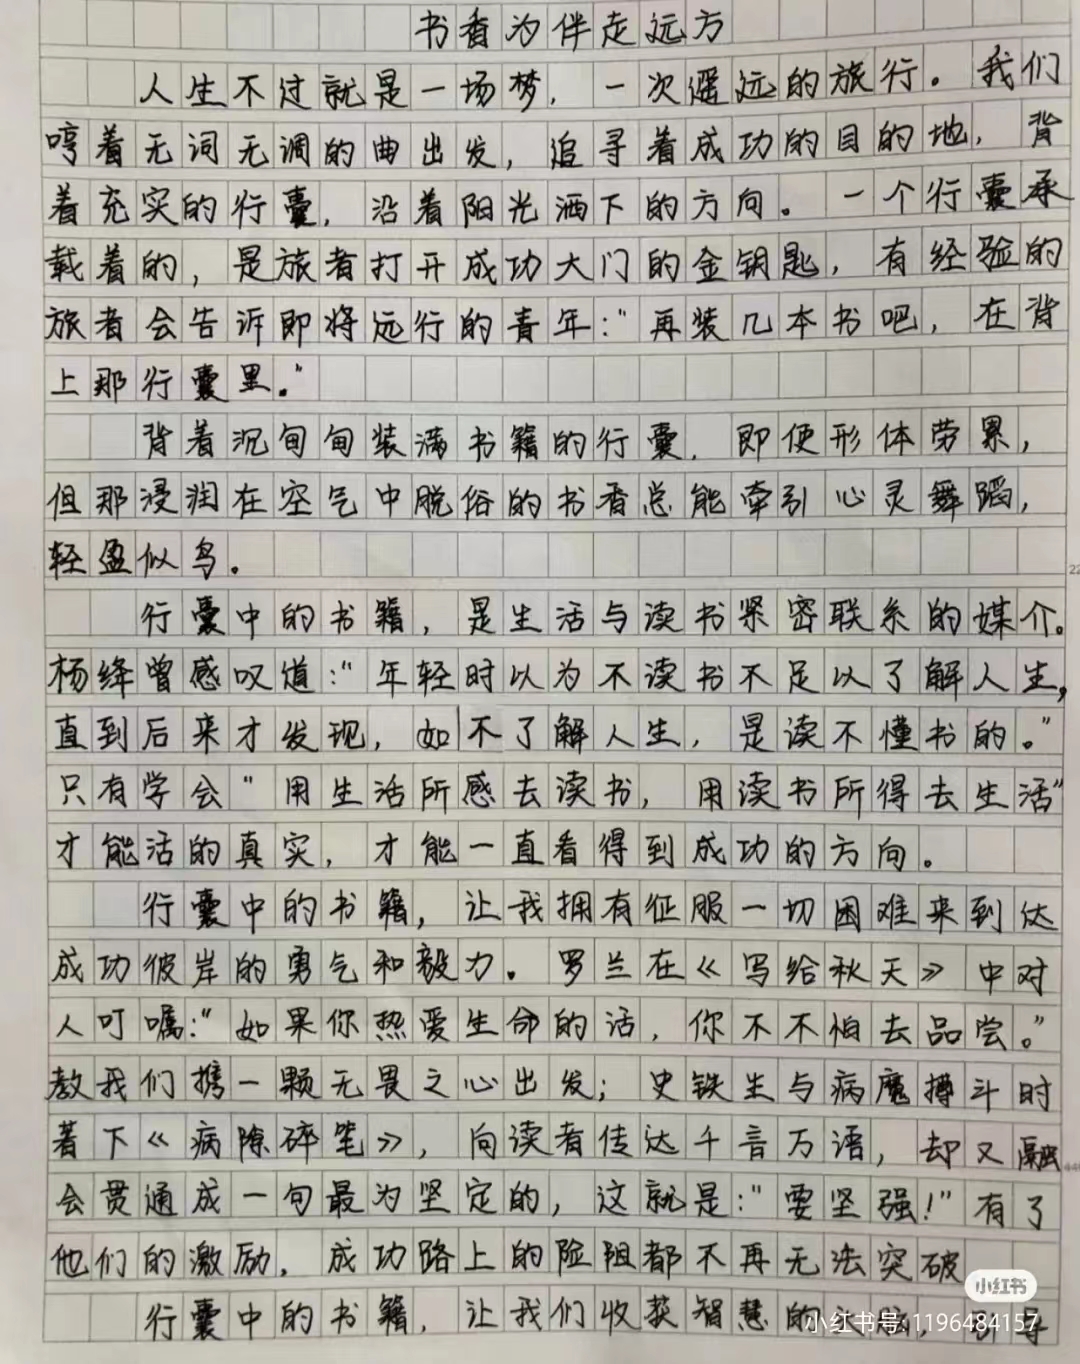 书香为伴走远方
人生不过就是一场梦，一次遥远的旅行。我们
哼着无词无调的曲出发，追寻着成功的目的地，背
着充实的行囊，沿着阳光洒下的方向。一个行囊承
载着的，是旅者打开成功大门的金钥匙，有经验的
旅者会告诉即将远行的青年：“再装几本书吧，在背
上那行囊里。”
背着沉甸甸装满书籍的行囊，即使形体劳累，
但那浸润在空气中脱俗的书香总能牵引心灵舞蹈，
轻盈似鸟。
22
行囊中的书籍，是生活与读书紧密联系的媒介。
杨绛曾感叹道：“年轻时以为不读书不足以了解人生，
直到后来才发现，如不了解人生，是读不懂书的。”
只有学会“用生活所感去读书，用读书所得去生活”
才能活的真实，才能一直看得到成功的方向。
行囊中的书籍，让我拥有征服一切困难来到达
成功彼岸的勇气和毅力。罗兰在《写给秋天》中对
人叮嘱：“如果你热爱生命的话，你不不怕去品尝。”
教我们携一颗无畏之心出发；史铁生与病魔搏斗时
著下《病隙碎笔》，向读者传达千言万语，却又融
会贯通成一句最为坚定的，这就是：“要坚强！”有了
他们的激励，成功路上的险阻都不再无法突破
小红书
行囊中的书籍，让我们收获智慧的，引导
小红书号：1196484157